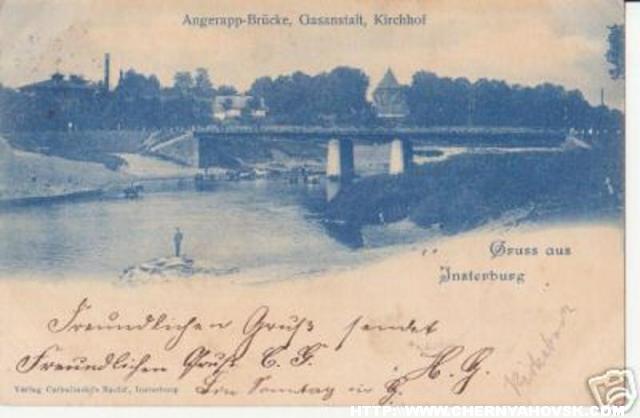 Angerapp-Brücke, Gasanstalt, Kirchhof
Gruss aus
Insterburg
Freundlichen Gruß sendet
Freundlichen Gruß C. G.
H. G.
Sonntag in
Verlag Insterburg
HTTP://WWW.CHERNYAHOVSK.COM